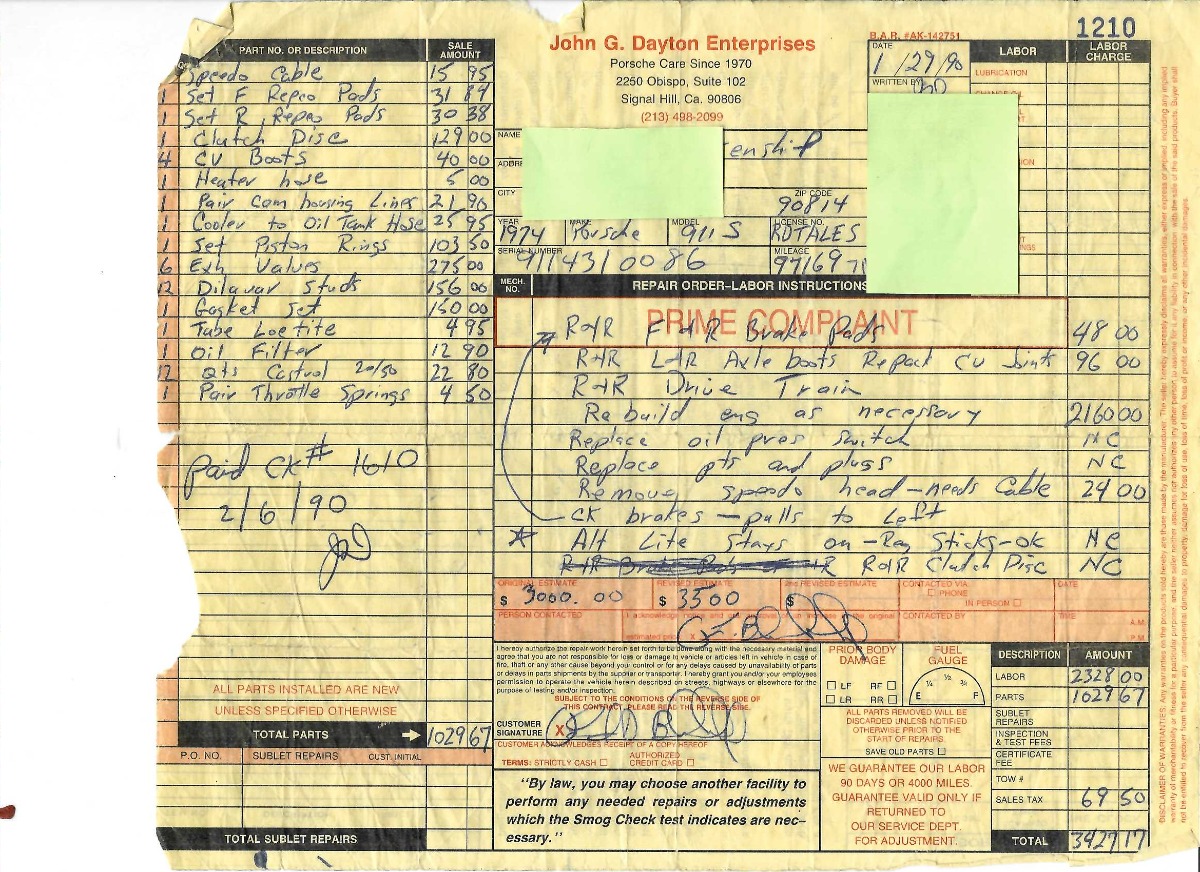 1210
John G. Dayton Enterprises
Porsche Care Since 1970
2250 Obispo, Suite 102
Signal Hill, Ca. 90806
(213) 498-2099
B.A.R. #AK-142751
DATE
1/29/90
WRITTEN BY
LABOR
LABOR CHARGE
LUBRICATION
PART NO. OR DESCRIPTION SALE AMOUNT
Speedo Cable 15 95
1 Set F Repco Pads 31 84
1 Set R Repco Pads 30 38
1 Clutch Disc 129 00
4 CV Boots 40 00
1 Heater hose 5 00
1 Pair Cam housing Lines 21 90
1 Cooler to Oil Tank Hose 25 95
1 Set Piston Rings 103 50
6 Exh Valves 275 00
12 Dilavar Studs 156 00
1 Gasket Set 150 00
1 Tube Loctite 4 95
1 Oil Filter 12 90
12 Qts Castrol 20/50 22 80
1 Pair Throttle Springs 4 50
Paid CK# 1610
2/6/90
JGD
ALL PARTS INSTALLED ARE NEW
UNLESS SPECIFIED OTHERWISE
TOTAL PARTS 1029 67
P.O. NO. SUBLET REPAIRS CUST. INITIAL
TOTAL SUBLET REPAIRS
NAME
enship
ADDRE
CITY
ZIP CODE
90814
YEAR MAKE MODEL LICENSE NO.
1974 Porsche 911 S ROTALES
SERIAL NUMBER MILEAGE
9114310086 97169
MECH. NO. REPAIR ORDER–LABOR INSTRUCTIONS
PRIME COMPLAINT
R&R F & R Brake Pads 48 00
R&R L&R Axle boots Repack CV Joints 96 00
R&R Drive Train
Rebuild eng as necessary 2160 00
Replace oil pres switch NC
Replace pts and plugs NC
Remove speedo head–needs Cable 24 00
CK brakes–pulls to Left
* Alt Lite stays on–Rag Sticks-ok NC
R&R Clutch Disc NC
ORIGINAL ESTIMATE REVISED ESTIMATE 2nd REVISED ESTIMATE CONTACTED VIA DATE
$ 3000.00 $ 3500 $
PHONE
IN PERSON
PERSON CONTACTED CONTACTED BY TIME
A.M.
P.M.
I hereby authorize the repair work herein set forth to be done along with the necessary material and
agree that you are not responsible for loss or damage to vehicle or articles left in vehicle in case of
fire, theft or any other cause beyond your control or for any delays caused by unavailability of parts
or delays in parts shipments by the supplier or transporter. I hereby grant you and/or your employees
permission to operate the vehicle herein described on streets, highways or elsewhere for the
purpose of testing and/or inspection.
SUBJECT TO THE CONDITIONS ON THE REVERSE SIDE OF
THIS CONTRACT, PLEASE READ THE REVERSE SIDE.
CUSTOMER SIGNATURE X
CUSTOMER ACKNOWLEDGES RECEIPT OF A COPY HEREOF
TERMS: STRICTLY CASH AUTHORIZED CREDIT CARD
"By law, you may choose another facility to
perform any needed repairs or adjustments
which the Smog Check test indicates are nec-
essary."
PRIOR BODY DAMAGE
LF RF
LR RR
FUEL GAUGE
E 1/4 1/2 3/4 F
ALL PARTS REMOVED WILL BE
DISCARDED UNLESS NOTIFIED
OTHERWISE PRIOR TO THE
START OF REPAIRS.
SAVE OLD PARTS
WE GUARANTEE OUR LABOR
90 DAYS OR 4000 MILES.
GUARANTEE VALID ONLY IF
RETURNED TO
OUR SERVICE DEPT.
FOR ADJUSTMENT.
DESCRIPTION AMOUNT
LABOR 2328 00
PARTS 1029 67
SUBLET REPAIRS
INSPECTION & TEST FEES
CERTIFICATE FEE
TOW #
SALES TAX 69 50
TOTAL 3427 17